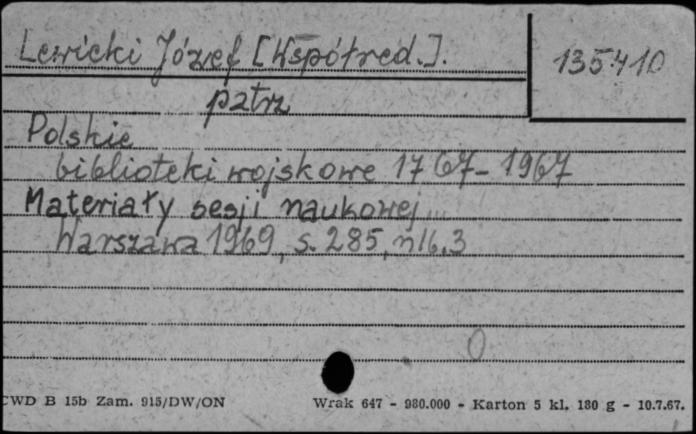 Lewicki Józef [Współred.].
135410
patrz
Polskie
biblioteki wojskowe 1767-1967
Materiały sesji naukowej
Warszawa 1969, s. 285, nlb. 3
CWD B 15b Zam. 915/DW/ON
Wrak 647 - 980.000 - Karton 5 kl. 180 g - 10.7.67.